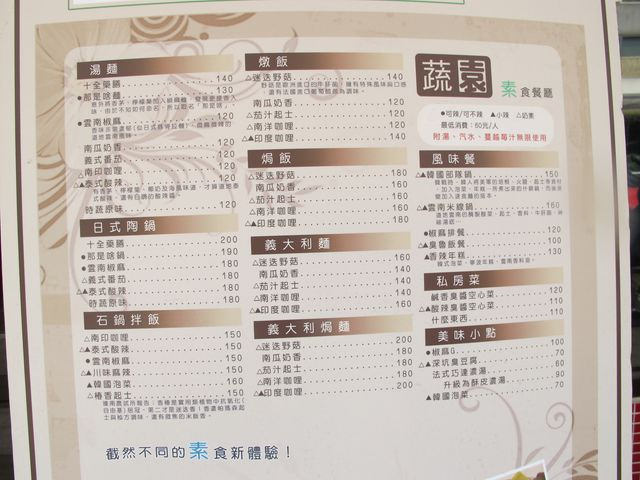 湯麵
十全藥膳 140
●那是啥麵 130
●雲南椒麻 120
南瓜奶香 130
義式番茄 120
南洋咖哩 120
△▲泰式酸辣 120
時蔬原味 120
日式陶鍋
十全藥膳 200
●那是啥鍋 190
●雲南椒麻 180
△義式番茄 180
△▲泰式酸辣 180
時蔬原味 180
石鍋拌飯
△南印咖哩 150
△▲泰式酸辣 150
●雲南椒麻 150
△▲川味麻辣 150
▲韓國泡菜 160
△椿香起士 150
燉飯
△迷迭野菇 140
南瓜奶香 120
△茄汁起士 120
△南洋咖哩 120
△▲印度咖哩 140
焗飯
△迷迭野菇 180
南瓜奶香 160
△茄汁起士 160
△南洋咖哩 160
△▲印度咖哩 180
義大利麵
△迷迭野菇 160
南瓜奶香 140
△茄汁起士 140
△南洋咖哩 140
△▲印度咖哩 160
義大利焗麵
△迷迭野菇 200
南瓜奶香 180
△茄汁起士 180
△南洋咖哩 180
△▲印度咖哩 200
蔬園 素食餐廳
●可辣/可不辣 ▲小辣 △奶素
最低消費:60元/人
附湯、汽水、蔓越莓汁無限使用
風味餐
△▲韓國部隊鍋 150
△▲雲南米線鍋 160
●椒麻排餐 120
△▲臭魯飯餐 100
●香辣年糕 130
私房菜
鹹香臭醬空心菜 120
△▲酸辣臭醬空心菜 110
什麼東西 110
美味小點
●椒麻G 100
△▲深坑臭豆腐 70
法式巧達濃湯 60
升級為酥皮濃湯 90
▲韓國泡菜 70
截然不同的素食新體驗!